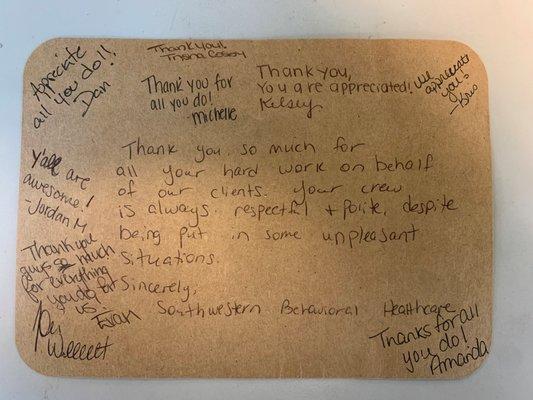 Appreciate
all you do!!
Dan
Thank you!
Thank you for
all you do!
Michelle
Thank you,
You are appreciated!
Kelsey
We
appreciate
you!
Y'all are
awesome!
-Jordan M.
Thank you so much for
all your hard work on behalf
of our clients. Your crew
is always respectful + polite, despite
being put in some unpleasant
situations.
Sincerely,
Southwestern Behavioral Healthcare
Thank you
guys so much
for everything
you do for
us.
Evan
Thanks for all
you do!
Amanda